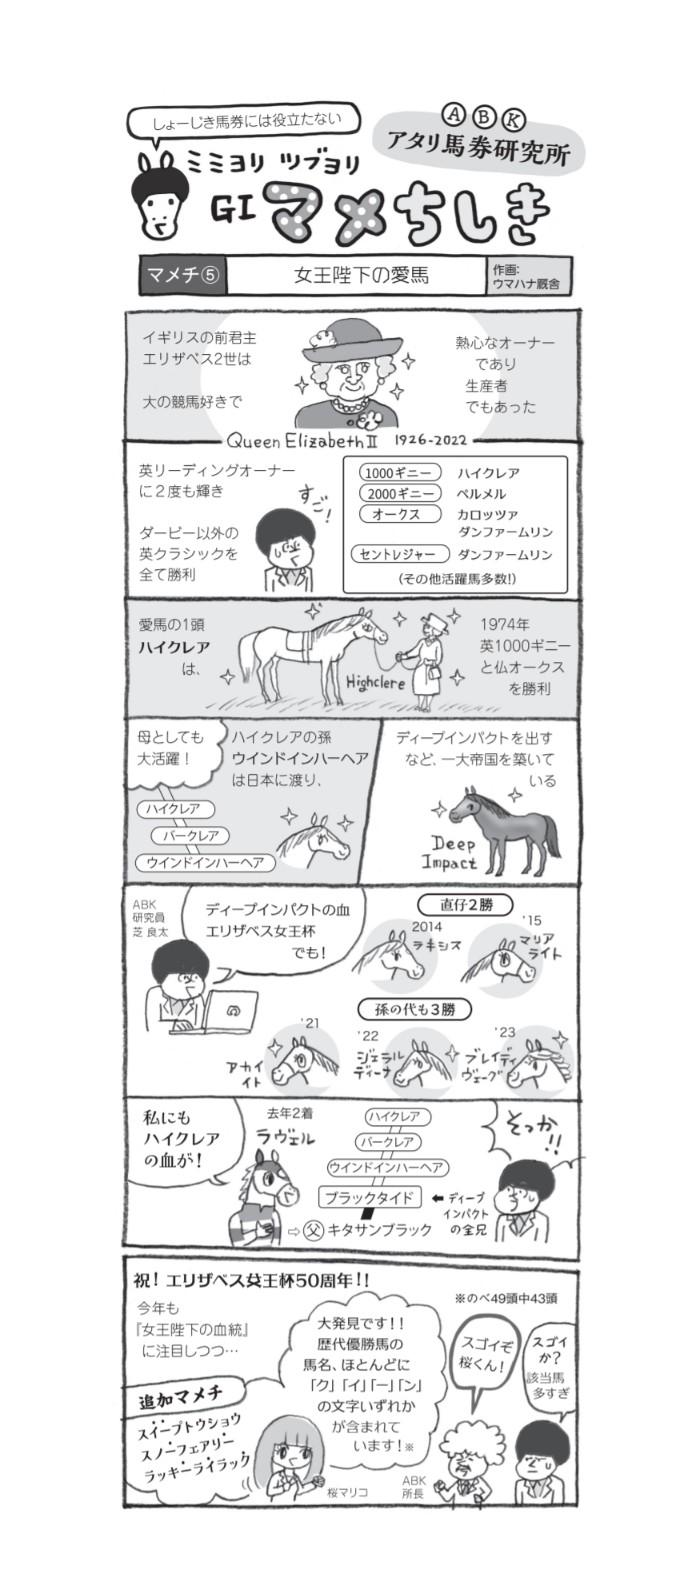 しょーじき馬券には役立たない
ABK
アタリ馬券研究所
ミミヨリ ツブヨリ
GI マメちしき
マメチ⑤
女王陛下の愛馬
作画:
ウマハナ厩舎
イギリスの前君主
エリザベス2世は
大の競馬好きで
熱心なオーナー
であり
生産者
でもあった
Queen Elizabeth II 1926-2022
英リーディングオーナー
に2度も輝き
ダービー以外の
英クラシックを
全て勝利
すご!
1000ギニー ハイクレア
2000ギニー ペルメル
オークス カロッツァ
ダンファームリン
セントレジャー ダンファームリン
(その他活躍馬多数!)
愛馬の1頭
ハイクレア
は、
Highclere
1974年
英1000ギニー
と仏オークス
を勝利
母としても
大活躍!
ハイクレア
バークレア
ウインドインハーヘア
ハイクレアの孫
ウインドインハーヘア
は日本に渡り、
ディープインパクトを出す
など、一大帝国を築いて
いる
Deep
Impact
ABK
研究員
芝 良太
ディープインパクトの血
エリザベス女王杯
でも!
直仔2勝
2014
ラキシス
'15
マリア
ライト
孫の代も3勝
'21
アカイ
イト
'22
ジェラル
ディーナ
'23
ブレイディ
ヴェーグ
私にも
ハイクレア
の血が!
去年2着
ラヴェル
ハイクレア
バークレア
ウインドインハーヘア
ブラックタイド
⬅ディープ
インパクト
の全兄
⇨父キタサンブラック
そっか!!
祝!エリザベス女王杯50周年!!
今年も
『女王陛下の血統』
に注目しつつ…
追加マメチ
スイープトウショウ
スノーフェアリー
ラッキーライラック
大発見です!!
歴代優勝馬の
馬名、ほとんどに
「ク」「イ」「ー」「ン」
の文字いずれか
が含まれて
います!※
桜マリコ
※のべ49頭中43頭
スゴイぞ
桜くん!
ABK
所長
スゴイ
か?
該当馬
多すぎ